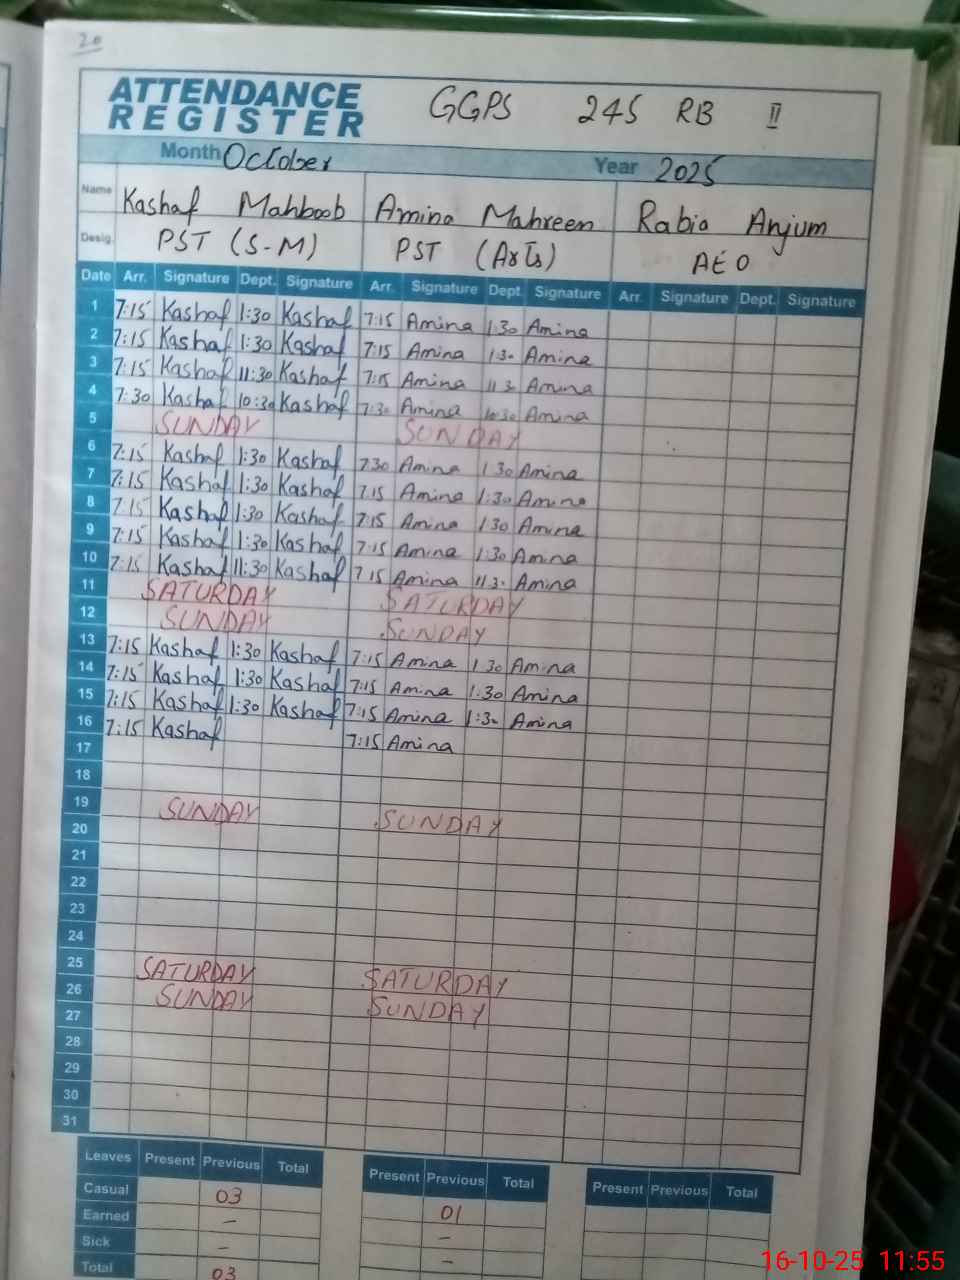 20
ATTENDANCE REGISTER GGPS 245 RB II
Month October Year 2025
Name Kashaf Mahboob Amina Mahreen Rabia Anjum
Desig. PST (S-M) PST (Arts) AEO
Date Arr. Signature Dept. Signature Arr. Signature Dept. Signature Arr. Signature Dept. Signature
1 7:15 Kashaf 1:30 Kashaf 7:15 Amina 1:30 Amina
2 7:15 Kashaf 1:30 Kashaf 7:15 Amina 1:30 Amina
3 7:15 Kashaf 11:30 Kashaf 7:15 Amina 11 30 Amina
4 7:30 Kashaf 10:30 Kashaf 7:30 Amina 10:30 Amina
5 SUNDAY SUNDAY
6 7:15 Kashaf 1:30 Kashaf 7 30 Amina 1 30 Amina
7 7:15 Kashaf 1:30 Kashaf 7:15 Amina 1:30 Amina
8 7:15 Kashaf 1:30 Kashaf 7:15 Amina 1:30 Amina
9 7:15 Kashaf 1:30 Kashaf 7:15 Amina 1:30 Amina
10 7:15 Kashaf 11:30 Kashaf 7 15 Amina 11 30 Amina
11 SATURDAY SATURDAY
12 SUNDAY SUNDAY
13 7:15 Kashaf 1:30 Kashaf 7:15 Amina 1 30 Amina
14 7:15 Kashaf 1:30 Kashaf 7:15 Amina 1:30 Amina
15 7:15 Kashaf 1:30 Kashaf 7:15 Amina 1:30 Amina
16 7:15 Kashaf 7:15 Amina
17
18
19 SUNDAY SUNDAY
20
21
22
23
24
25 SATURDAY SATURDAY
26 SUNDAY SUNDAY
27
28
29
30
31
Leaves Present Previous Total Present Previous Total Present Previous Total
Casual 03 01
Earned - -
Sick - -
Total 03
16-10-25 11:55